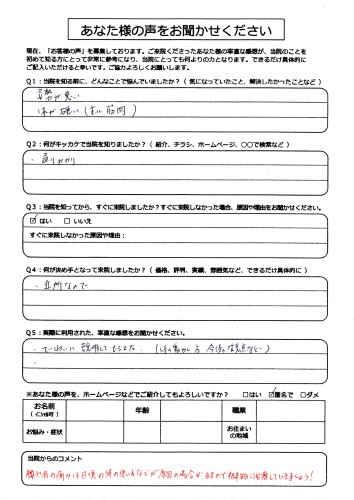 あなた様の声をお聞かせください
現在、「お客様の声」を募集しております。ご来院くださったあなた様の率直な感想が、当院のことを
初めて知る方にとって非常に参考になり、当院にとっても何よりの力となります。できるだけ具体的に
ご記入いただけると幸いです。ご協力よろしくお願いします。
Q1：当院を知る前に、どんなことで悩んでいましたか？（ 気になっていたこと、解決したかったことなど ）
姿勢が悪い
体が硬い（主に筋肉）
Q2：何がキッカケで当院を知りましたか？（ 紹介、チラシ、ホームページ、〇〇で検索など ）
・通りがかり
Q3：当院を知ってから、すぐに来院しましたか？すぐに来院しなかった場合、原因や理由をお聞かせください。
☑ はい　□ いいえ
すぐに来院しなかった原因や理由：
Q4：何が決め手となって来院しましたか？（ 価格、評判、実績、雰囲気など、できるだけ具体的に ）
・近所なので
Q5：実際に利用された、率直な感想をお聞かせください。
・ていねいに説明してもらえた。（体の動かし方 今後の注意点など）
※あなた様の声を、ホームページなどでご紹介してもよろしいですか？　□はい ☑匿名で □ダメ
お名前
（ｲﾆｼｬﾙ可） 年齢 職業
お悩み・症状 お住まい
の地域
当院からのコメント
体の使い方などが原因の場合があるので根本的に治療していきましょう！